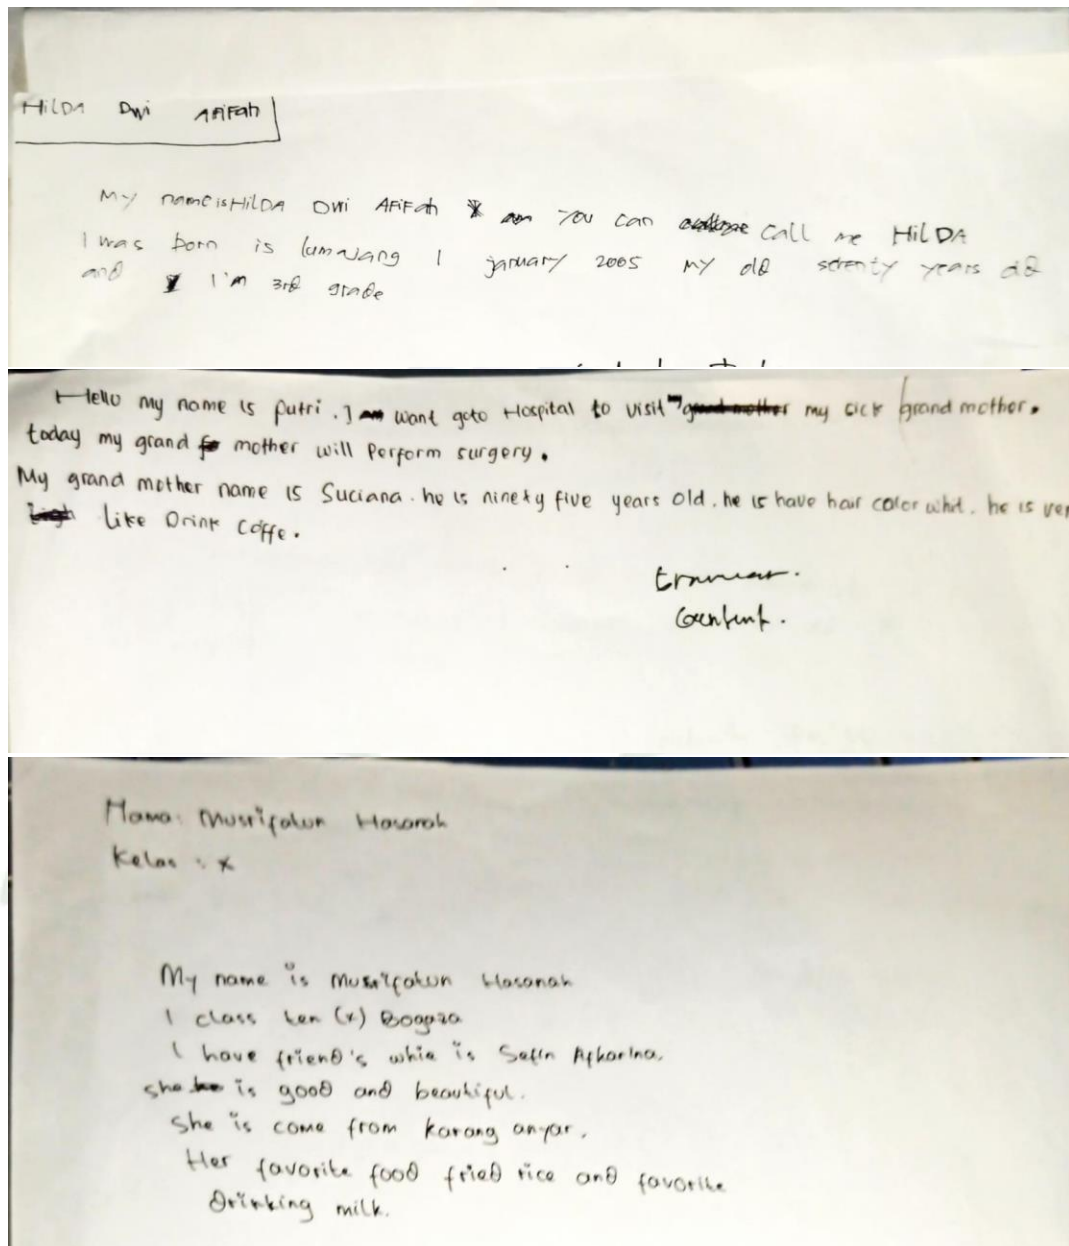 HilDA Dwi AFiFah
My name is HilDA Dwi AFiFah You can call me HilDA
I was born is lumajang 1 january 2005 My old years old
and I'm 3rd grade
Hello my name is putri . I want goto Hospital to visit my sick grand mother.
today my grand mother will Perform surgery.
My grand mother name is Suciana. he is ninety five years old. he is have hair color whit. he is ver
like Drink Coffe.
Content.
Nama: Musrifatun Hasanah
Kelas : X
My name is Musrifatun Hasanah
I class ten (x) Bogasa
I have friend's whie is Sefin Afkarina.
She is good and beautiful.
She is come from karang anyar.
Her favorite food fried rice and favorite
Drinking milk.